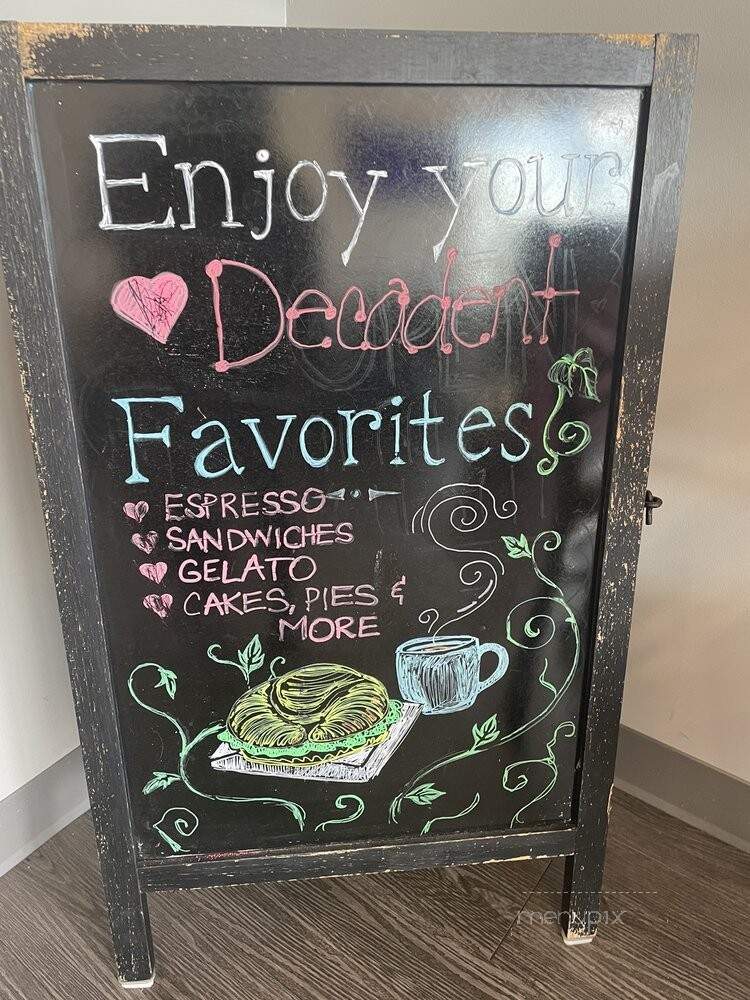 Enjoy your
Decadent
Favorites
ESPRESSO
SANDWICHES
GELATO
CAKES, PIES &
MORE
menupix